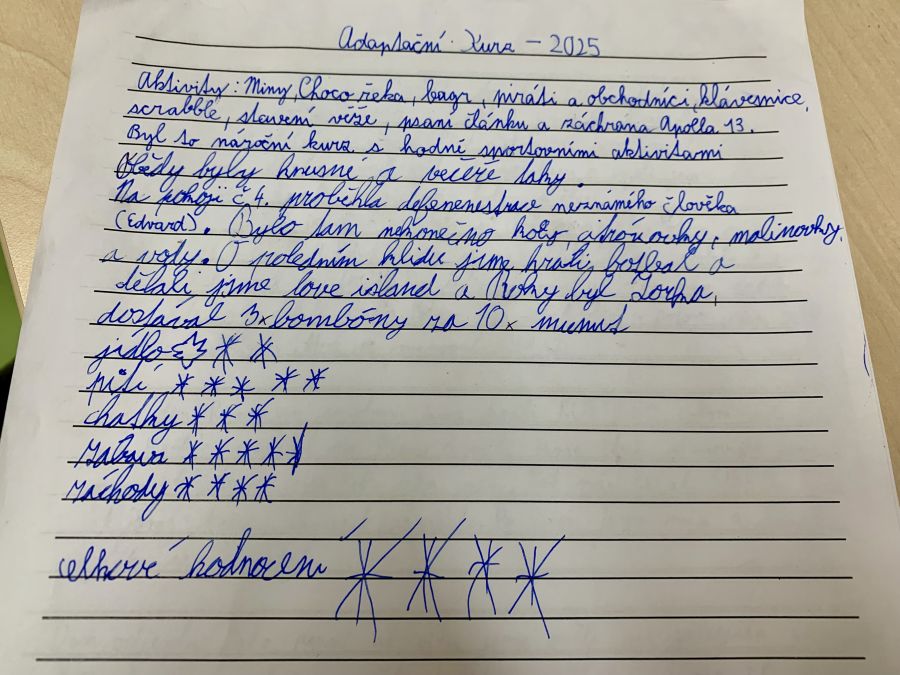 Adaptační Kurz - 2025
Aktivity: Miny, Choco řeka, bagr, piráti a obchodníci, klávesnice,
scrabble, stavení věže, psaní článku a záchrana Apolla 13.
Byl to nároční kurz s hodně sportovními aktivitami
Obědy byly hnusné, a večeře taky.
Na pokoji č. 4. proběhla defenenestrace neznámého člověka
(Edvard). Bylo tam nekonečno koly, citrónovky, malinovky,
a vody. O poledním klidu jsme hráli fotbal a
dělali jsme love island a Rohy byl Zorka,
dostával 3x bombóny za 10x minus
jídlo
pití
chatky
zábava
záchody
celkové hodnocení